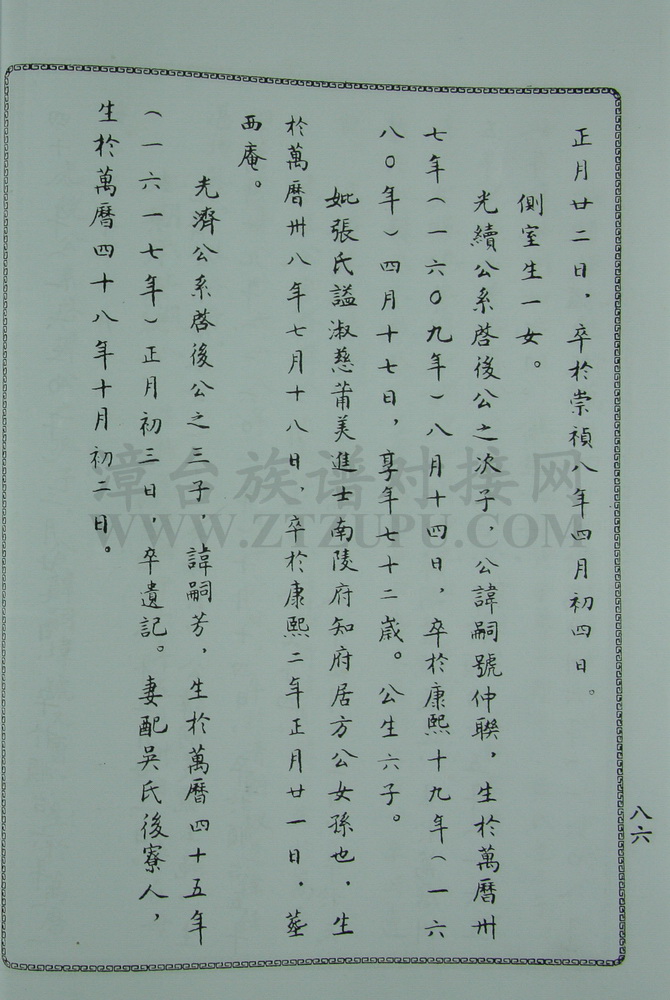 正月廿二日，卒於崇禎八年四月初四日。
側室生一女。
光續公系啓後公之次子，公諱嗣號仲聯，生於萬曆卅
七年（一六0九年）八月十四日，卒於康熙十九年（一六
八0年）四月十七日，享年七十二歲。公生六子。
妣張氏謚淑慈莆美進士南陵府知府居方公女孫也，生
於萬曆卅八年七月十八日，卒於康熙二年正月廿一日，塟
西庵。
光濟公系啓後公之三子，諱嗣芳，生於萬曆四十五年
（一六一七年）正月初三日，卒遺記。妻配吳氏後寮人，
生於萬曆四十八年十月初二日。
八六
章台族谱对接网
WWW.ZTZUPU.COM